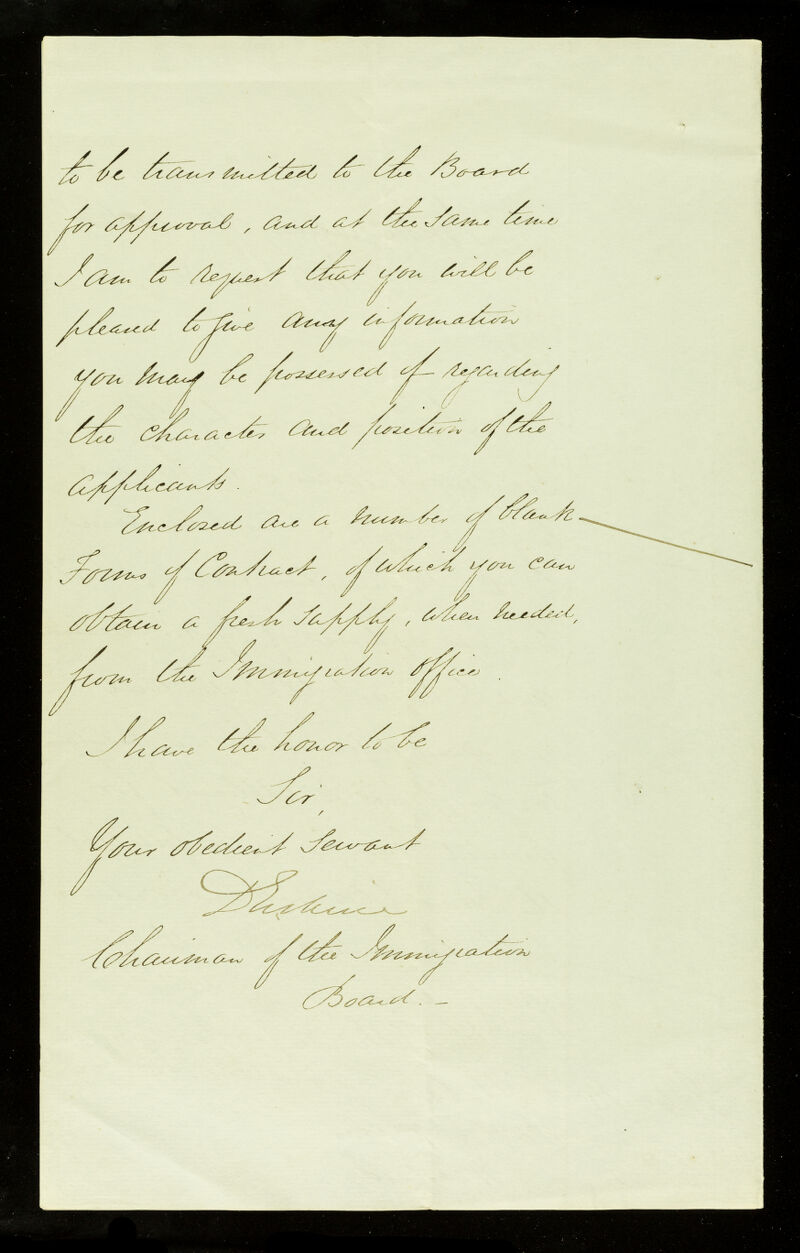 to be transmitted to the Board
for approval, and at the same time
I am to request that you will be
pleased to give any information
you may be possessed of regarding
the character and position of the
applicants.
Enclosed are a number of blank
Forms of Contract, of which you can
obtain a fresh supply, when needed,
from the Immigration Office.
I have the honor to be
Sir,
Your obedient Servant
D Erskine
Chairman of the Immigration
Board. –